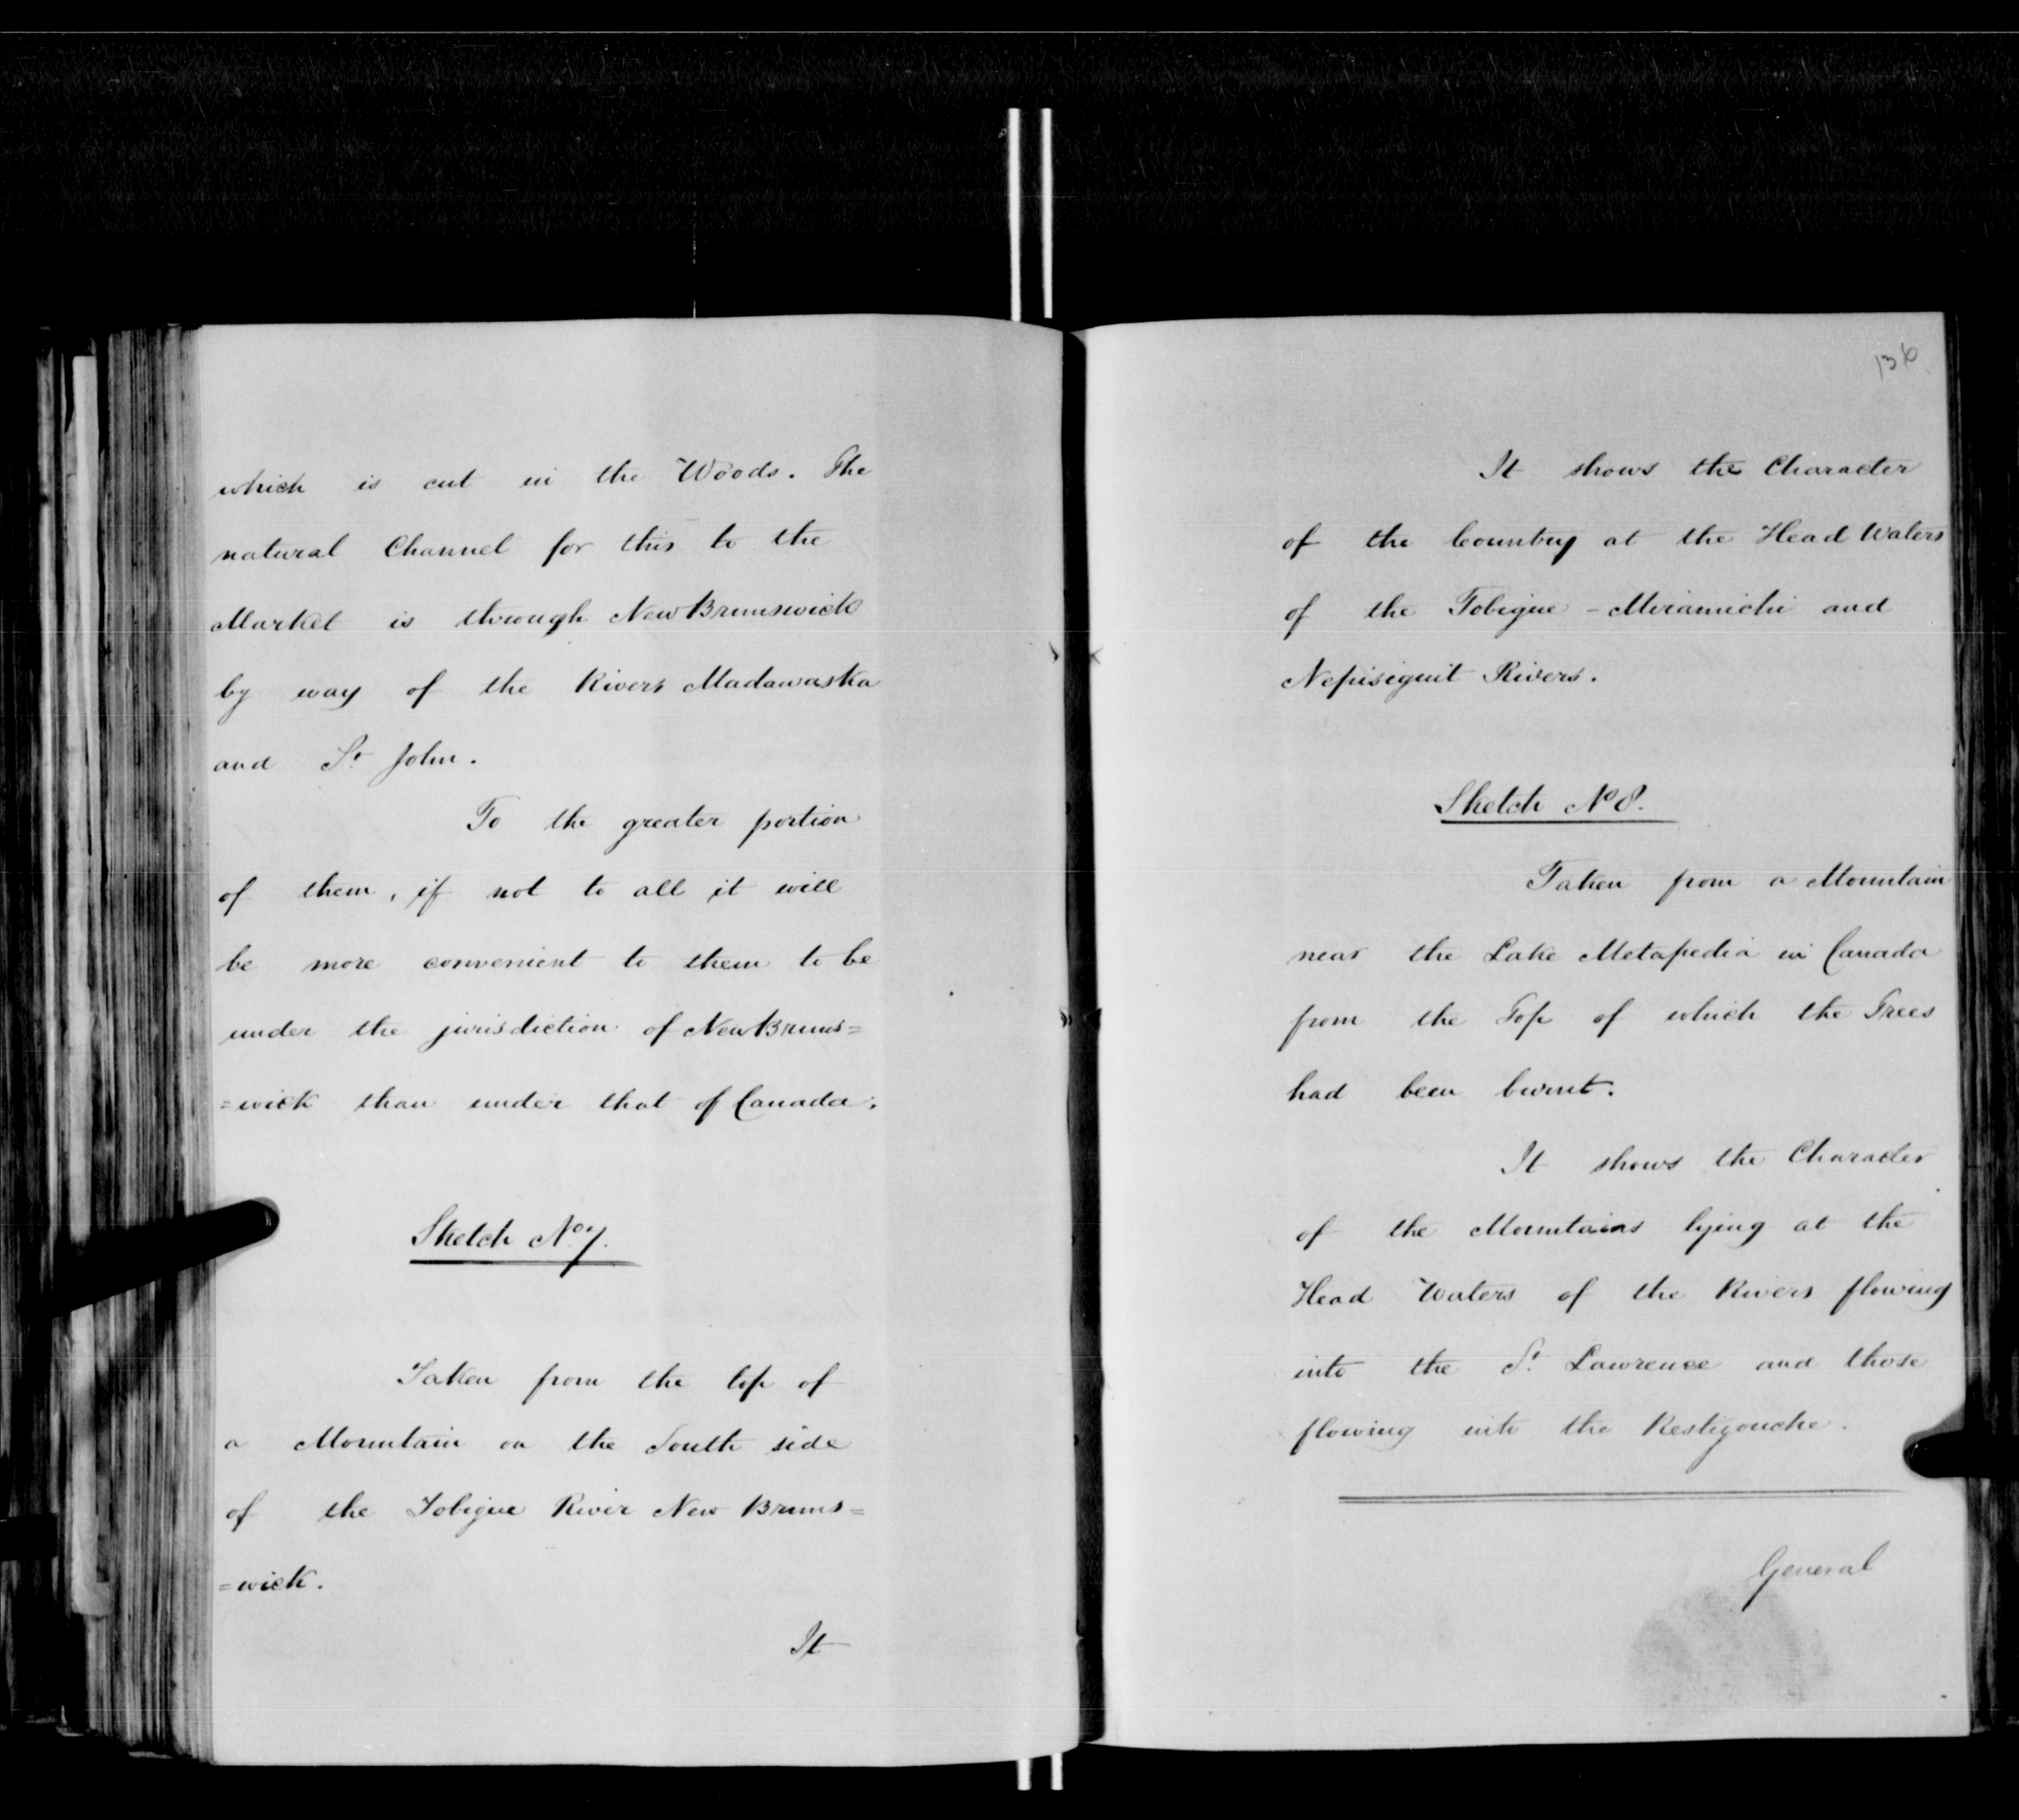 which is cut in the Woods. The
natural Channel for this to the
Market is through New Brunswick
by way of the Rivers Madawaska
and St. John.
To the greater portion
of them, if not to all it will
be more convenient to them to be
under the jurisdiction of New Bruns=
=wick than under that of Canada.
Sketch No 7.
Taken from the top of
a Mountain on the South side
of the Tobique River New Bruns=
=wick.
It
136
It shows the Character
of the Country at the Head Waters
of the Tobique - Miramichi and
Nepisiguit Rivers.
Sketch No 8.
Taken from a Mountain
near the Lake Metapedia in Canada
from the Top of which the Trees
had been burnt.
It shows the Character
of the Mountains lying at the
Head Waters of the Rivers flowing
into the St. Lawrence and those
flowing into the Restigouche.
General